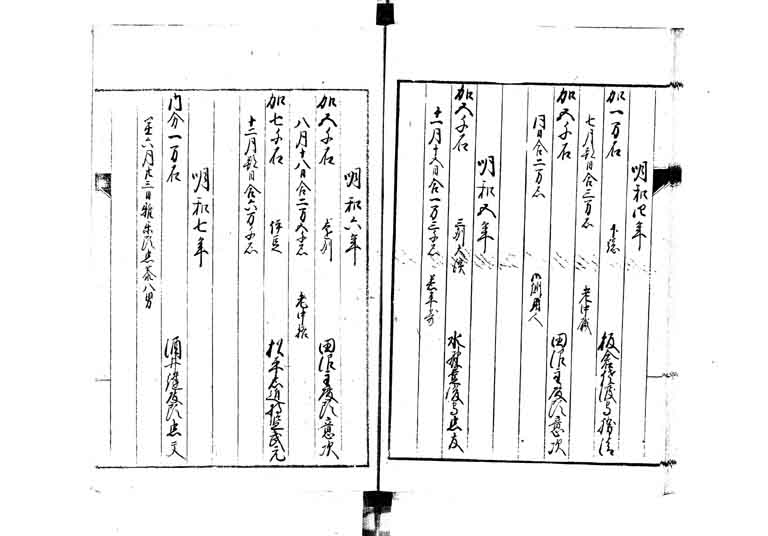 明和四年
加一万石
板倉佐渡守勝清
七月朔日合三万石
老中格
加五千石
田沼主殿頭意次
同日合二万石
御側用人
明和五年
加五千石
三州大濱
水野出羽守忠友
十一月十五日合一万三千石
若年寄
明和六年
加五千石
田沼主殿頭意次
八月十八日合二万五千石
老中格
加七千石
伊豆
松平右近将監武元
十二月朔日合六万千石
明和七年
内分一万石
酒井
六月廿三日雅楽頭忠恭八男